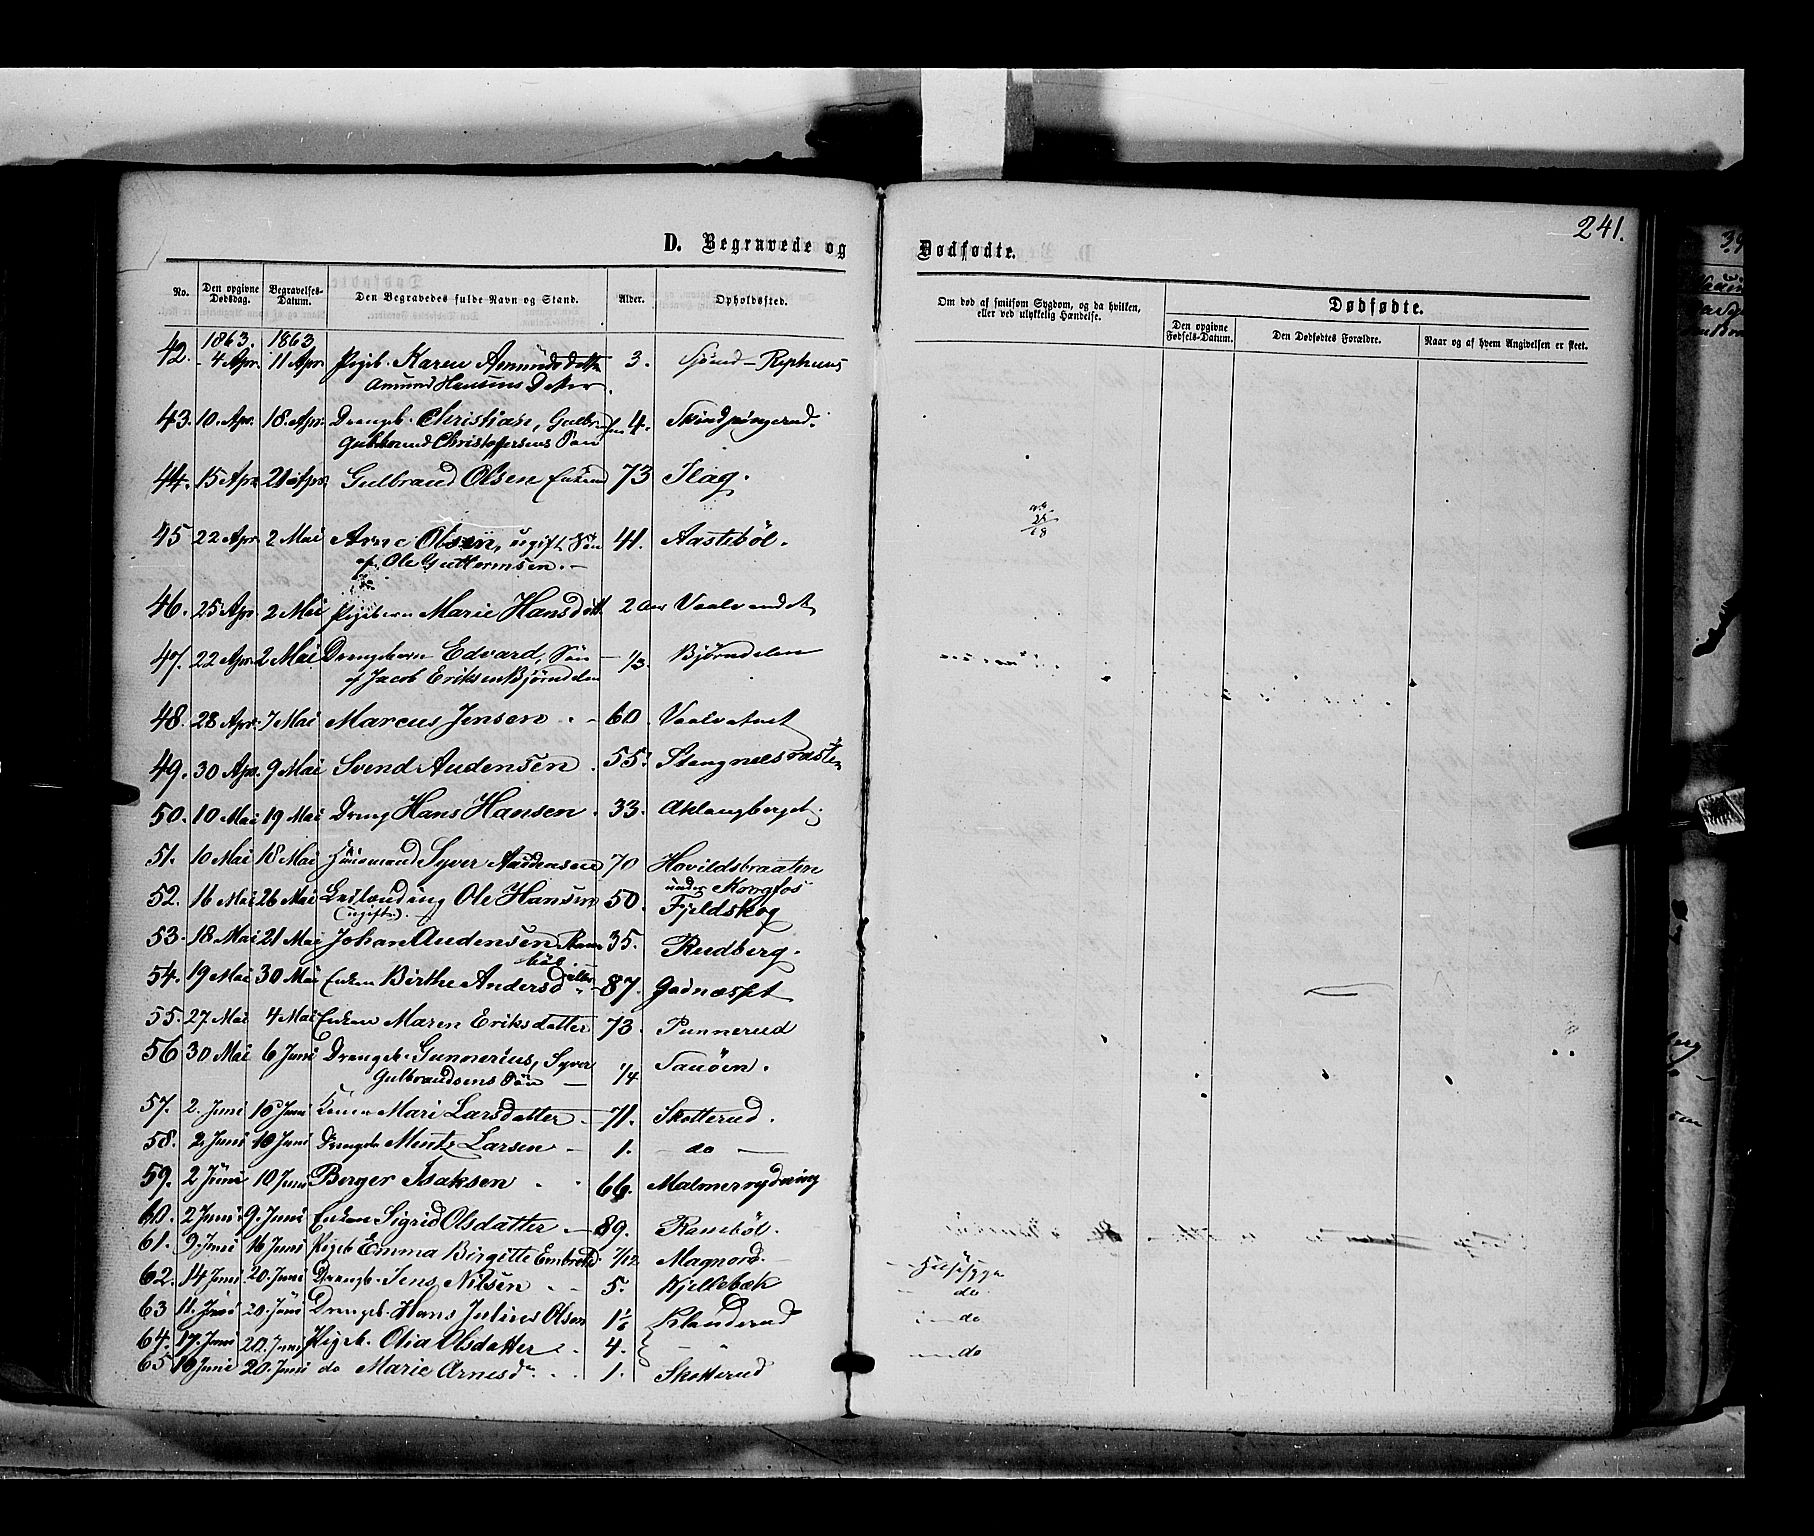 241.
D. Begravede og Dødfødte.
No. Den opgivne Dødsdag. Begravelses-Datum. Den Begravedes fulde Navn og Stand. Alder. Opholdssted. Om død af smitsom Sygdom, og da hvilken, eller ved ulykkelig Hændelse. Dødfødte.
Den opgivne Fødsels-Datum. Den Dødfødtes Forældre. Naar og af hvem Angivelsen er skeet.
1863. 1863
42. 4 Apr. 11 Apr. Pigeb. Karen Amunds Datter 3.
Amund Hansens Datter.
43. 10 Apr. 18 Apr. Drengeb. Christian, Gulbr 4.
Gulbrand Christoffersens Søn
44. 15 Apr. 21 Apr. Gulbrand Olsen Enkem 73 Ilag.
45 22 Apr. 2 Mai Arne Olsen, ugift Søn 41. Aastebøl.
af Ole Guttormsen.
46. 25 Apr. 2 Mai Pigebarn Marie Hansdatt 2 Aar Vaalvandet
47. 22 Apr. 2 Mai Drengebarn Edvard, Søn 1/3. Bjørndalen
af Jacob Eriksen Bjørndalen
48. 28 Apr. 7 Mai Marcus Jensen 60.
49. 30 Apr. 9 Mai Svend Audensen 55.
50. 10 Mai 19 Mai Dreng Hans Hansen. 33. Aklangberget.
51. 10 Mai 18 Mai Huusmand Syver Audensen 70 Hovildsbraaten
under Kongfos
52. 16 Mai 26 Mai Ole Hansen 50. Fjeldskog
(ugift).
53. 18 Mai 21 Mai Johan Audensen Rane 35. Rudberg.
bøl
54. 19 Mai 30 Mai Enken Birthe Andersdatter 87.
55. 27 Mai 4 Mai Enken Maren Eriksdatter 73. Punnerud
56 30 Mai 6 Juni Drengeb. Gunnerius, Syver 1/4
Gulbrandsens Søn
57. 2. Juni 10 Juni Konen Mari Larsdatter 71. Skotterud.
58. 2 Juni 10 Juni Drengeb Larsen 1. do
59. 2 Juni 10 Juni Berger Isaksen 66. Malmerrydning
60. 2 Juni. 9. Juni Enken Sigrid Olsdatter 89. Ranebøl.
61. 9. Juni 16 Juni Pigeb Emma Birgitte 7/12 Magnord.
62. 14 Juni 20. Juni Drengb. Jens Nilsen 5. Kjellebæk do
63 11. Juni 20. Juni Drengeb. Hans Julius Olsen 1 1/6 do
64. 17. Juni 20. Juni Pigeb. Olia Olsdatter 4. " do
65 16 Juni 20. Juni do Marie Arnesd. 1. Skotterud